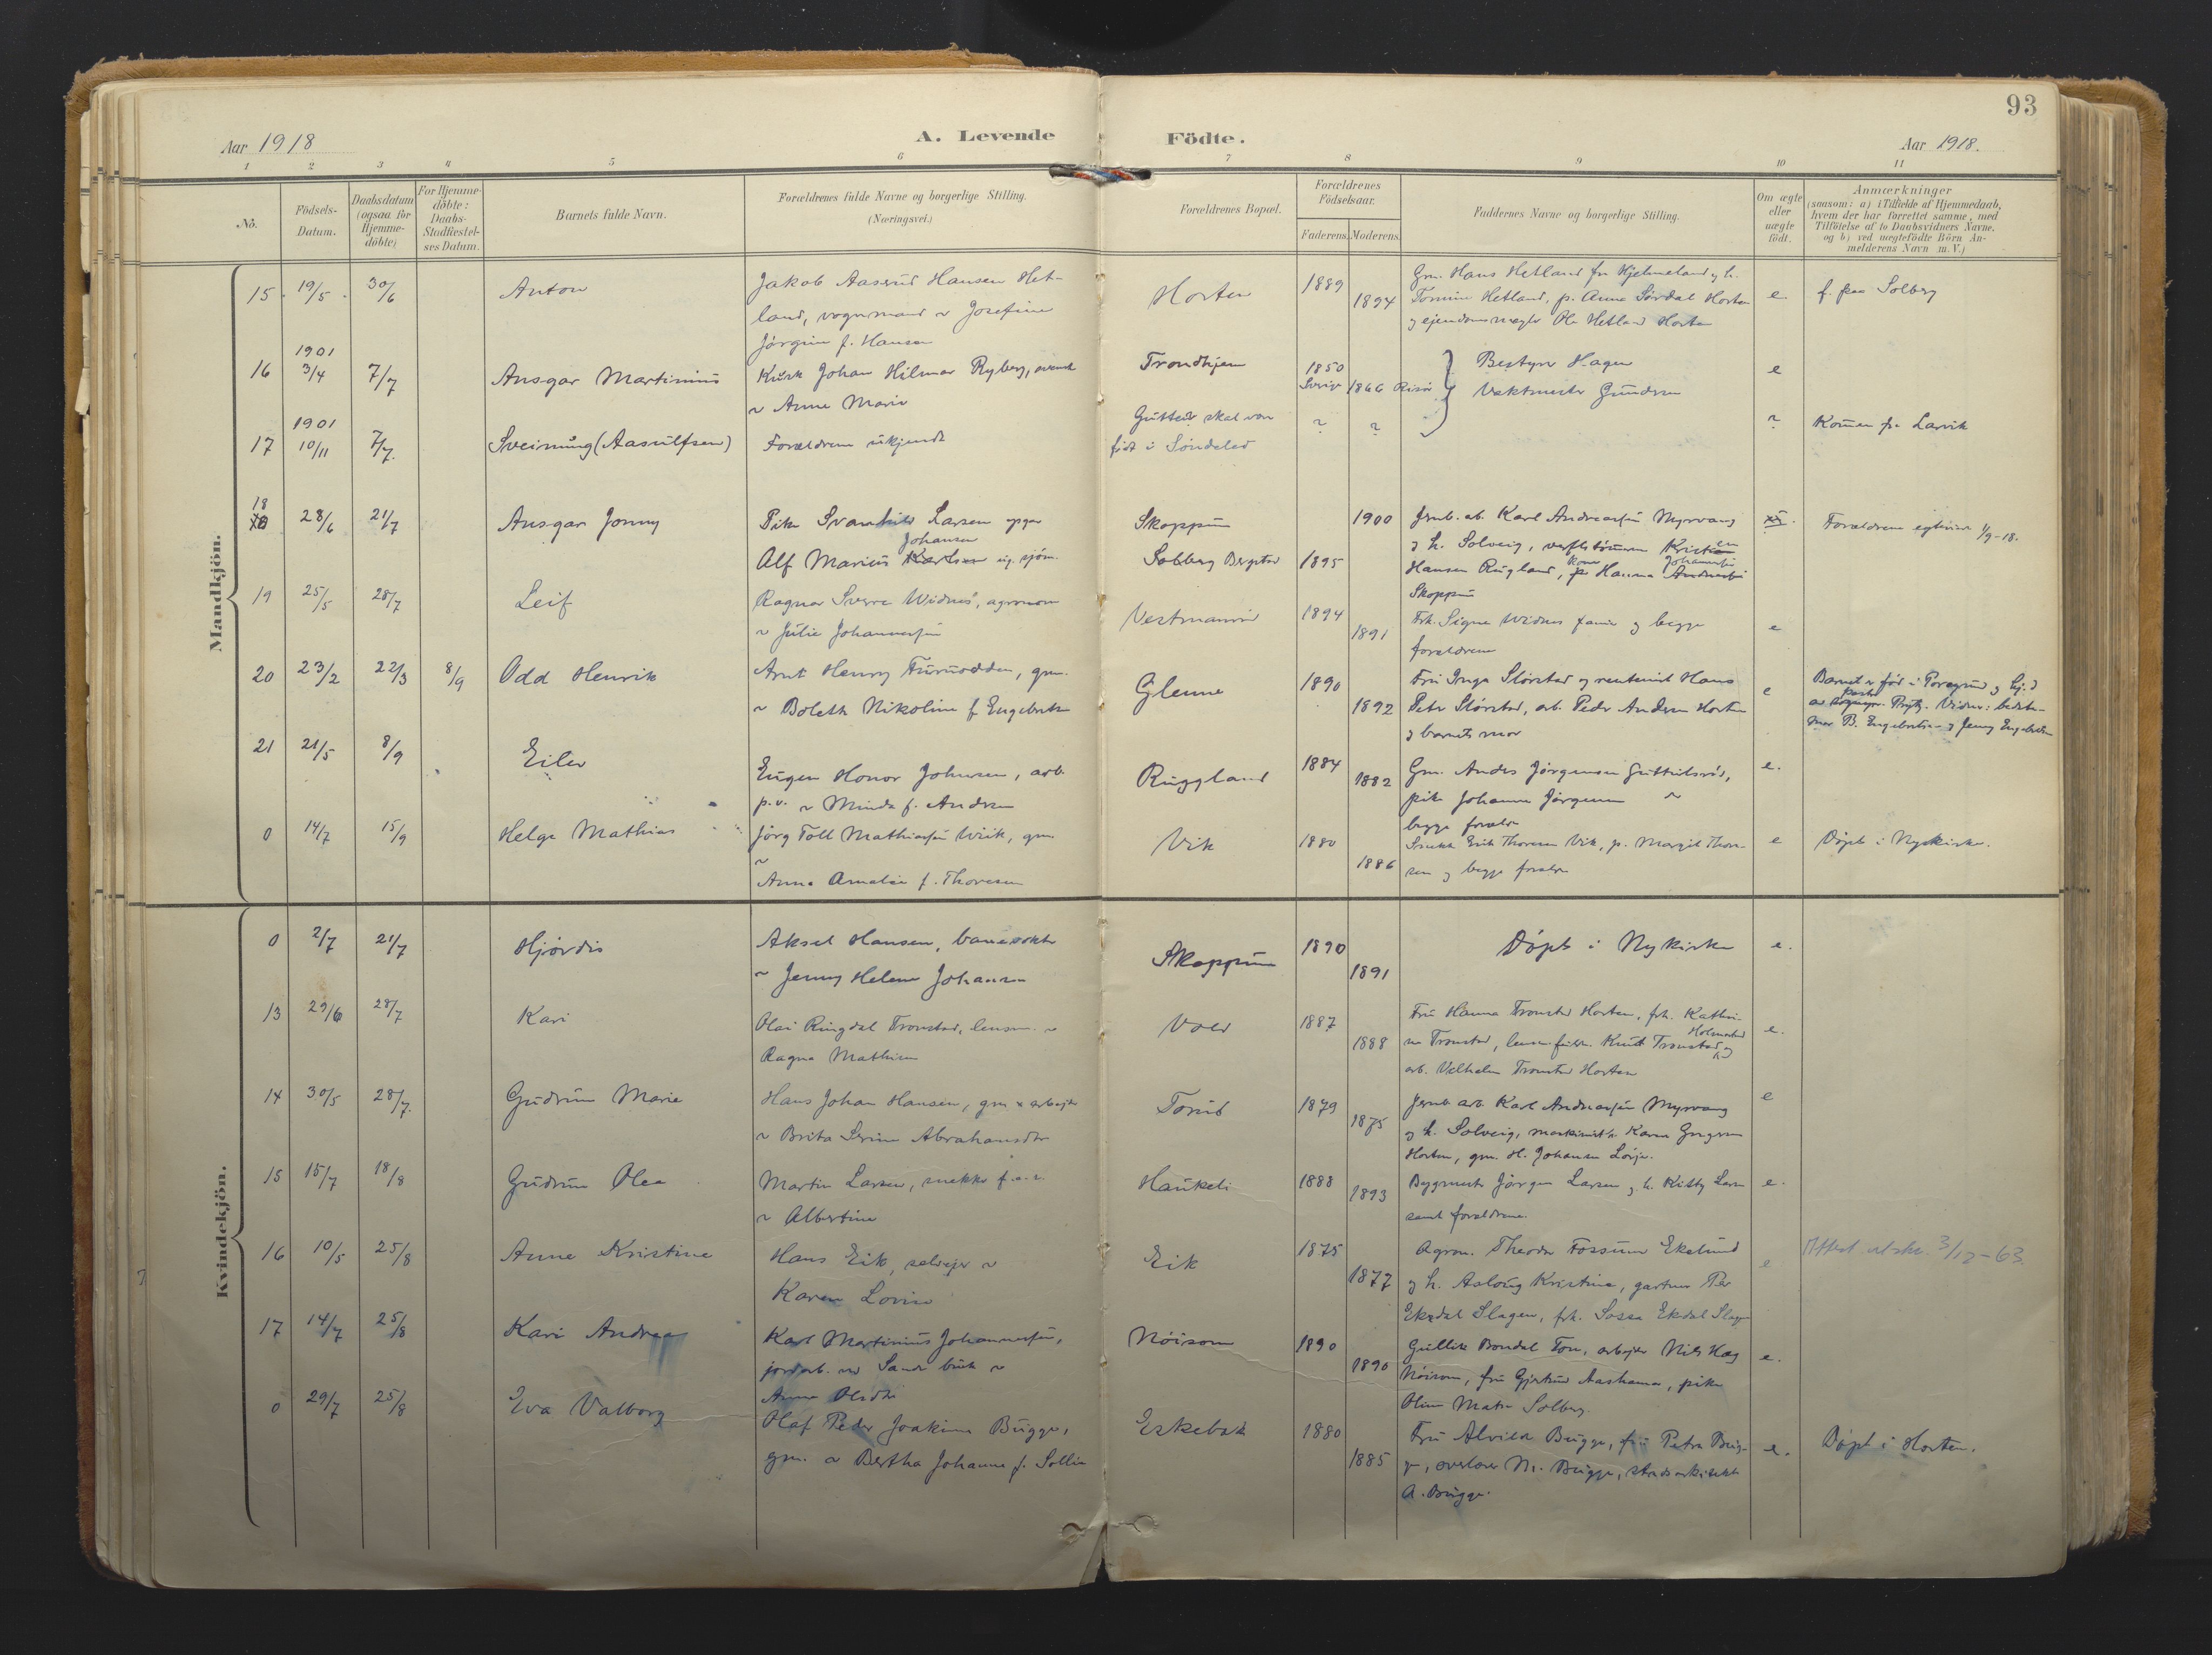 93
Aar 1918
A. Levende Födte.
Aar 1918.
1 2 3 4 5 6 7 8 9 10 11
No.
Födsels-
Datum.
Daabsdatum
(ogsaa for
Hjemme-
döbte)
For Hjemme-
döbte:
Daabs-
Stadfæstel-
ses Datum.
Barnets fulde Navn.
Forældrenes fulde Navne og borgerlige Stilling.
(Næringsvei.)
Forældrenes Bopæl.
Forældrenes
Födselsaar.
Faderens. Moderens.
Faddernes Navne og borgerlige Stilling.
Om ægte
eller
uægte
födt.
Anmærkninger
(saasom: a) i Tilfælde af Hjemmedaab,
hvem der har forrettet samme, med
Tilföielse af to Daabsvidners Navne,
og b) ved uægtefödte Börn An-
melderens Navn m. V.)
Mandkjön.
15. 19/5. 30/6 Anton
Jakob Aaserud Hansen Het-
land, vognmand & Josefine
Jörgine f. Hansen
Horten 1889 1894
Gm. Hans Hetland fra Hjelmeland og h.
Tomine Hetland, p. Anna Sördal Horten
og ejendomsmegler Ole Hetland Horten
e. f. paa Solberg
16 1901 3/4 7/7 Ansgar Martinius
Kusk Johan Hilmar Ryberg, svensk
& Anne Marie
Trondhjem 1850 Sverige 1866 Risör
Bestyrer Hagen
Vaktmester Gundersen
e
17 1901 10/11 7/7. Sveinung (Aasulfsen)
Forældrene ukjendt
Gutten skal være
födt i Söndeled
? ? ? Kommen fra Larvik
18 28/6 21/7 Ansgar Jonny
Pike Svanhild Larsen opgav
Johansen
Alf Marius Karlsen ug. sjöm.
Skoppum
Solberg Bergsted 1895 1900
Jernb. arb. Karl Andreassen Myrvang
og h. Solveig, verftstömmerm. Kristian
Hansen Rugland, kone Hanna Johannessen
Skoppum
Forældrene egteviet 1/9-18.
19 25/5 28/7 Leif
Ragnar Sverre Widnes, agronom
& Julie Johannessen
Vestmanröd 1894 1891
Frk. Signe Widnes, og begge
forældrene
e
20 23/2 22/3 8/9 Odd Henrik
Arnt Henry Furuodden, gm.
& Boleth Nikoline f. Engebretsen
Glenne 1890 1892
Fru Inga Störstad og rentenist Hans
Peter Störstad, arb. Peder Andersen Horten
og barnets mor
e
Barnet er född i Porsgrund og hj.d
mor B. Engebretsen og Jenny Engebretsen
21 21/5 8/9 Eilev
Eugen Honor Johnsen, arb.
p.v. & Minda f. Andersen
Ruggland 1884 1882
Gm. Anders Jörgensen Guttulsröd,
pike Johanne Jörgensen &
begge forældre
e.
0 14/7 15/9 Helge Mathias
Jörg Toll Mathiassen Wiik, gm
&
Anna Amalie f. Thoresen
Vik 1880 1886
Snekk. Erik Thoresen Vik, p. Margit Thore-
sen og begge forældre
e Döpt i Nykirke.
Kvindekjön.
0 2/7 21/7 Hjördis
Aksel Hansen, banevokter
& Jenny Helene Johansen
Skoppum 1890 1891
Döpt i Nykirke e.
13 29/6 28/7 Kari
Olai Ringdal Tronstad, lensm. &
Ragna Mathisen
Vold 1887 1888
Fru Hanna Tronstad Horten, frk. Kathri-
ne Tronstad, lensm.fuldm. Knut Tronstad Holmestrand og
arb. Vilhelm Tronstad Horten
e.
14 30/5 28/7. Gudrun Marie
Hans Johan Hansen, gm & arbejder
& Brita Serine Abrahamsdtr
Torud 1879 1875
Jernb. arb. Karl Andreassen Myrvang
og h. Solveig, maskinisth. Karen Gregersen
Horten, gm. H. Johansen Lörje.
e
15 15/7 18/8 Gudrun Olea
Martin Larsen, snekker f.a.v.
& Albertine
Haukeli 1888 1893
Bygmester Jörgen Larsen og h. Kitty Larsen
samt forældrene.
e.
16 10/5 25/8 Anne Kristine
Hans Eik, selvejer &
Karen Lovise
Eik 1875 1877
Agron. Theodor Fossum Ekelund
og h. Aslaug Kristine, gartner Per
Ekedal Slagen, frk. Sossa Ekdal Slagen
e
Attest utskr. 3/12-63.
17 14/7 25/8 Kari Andrea
Karl Martinius Johannessen,
jordarb. ved Sande bruk &
Anna Olsdtr
Nöisom 1890 1890
Gullik Bondal Ton, arbejder Nils Hag
Nöisom, fru Gjertrud Aashamar, pike
Oline Mathea Solberg.
e.
0 29/7 25/8 Eva Valborg
Olaf Peder Joakim Bugge,
gm. & Bertha Johanne f. Sollie
Eskebæk 1880 1885
Fru Alvilda Bugge, fru Petra Bug-
ge, overlærer M. Bugge, stadsarkitekt
A. Bugge.
e. Döpt i Horten.